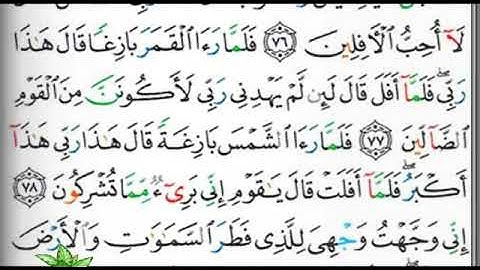 لَآ أُحِبُّ ٱلْأَفِلِينَ ٧٦ فَلَمَّا رَءَا ٱلْقَمَرَ بَازِغًا قَالَ هَٰذَا
رَبِّى ۖ فَلَمَّآ أَفَلَ قَالَ لَئِن لَّمْ يَهْدِنِى رَبِّى لَأَكُونَنَّ مِنَ ٱلْقَوْمِ
ٱلضَّآلِّينَ ٧٧ فَلَمَّا رَءَا ٱلشَّمْسَ بَازِغَةً قَالَ هَٰذَا رَبِّى هَٰذَآ
أَكْبَرُ ۖ فَلَمَّآ أَفَلَتْ قَالَ يَٰقَوْمِ إِنِّى بَرِىٓءٌ مِّمَّا تُشْرِكُونَ ٧٨
إِنِّى وَجَّهْتُ وَجْهِىَ لِلَّذِى فَطَرَ ٱلسَّمَٰوَٰتِ وَٱلْأَرْضَ